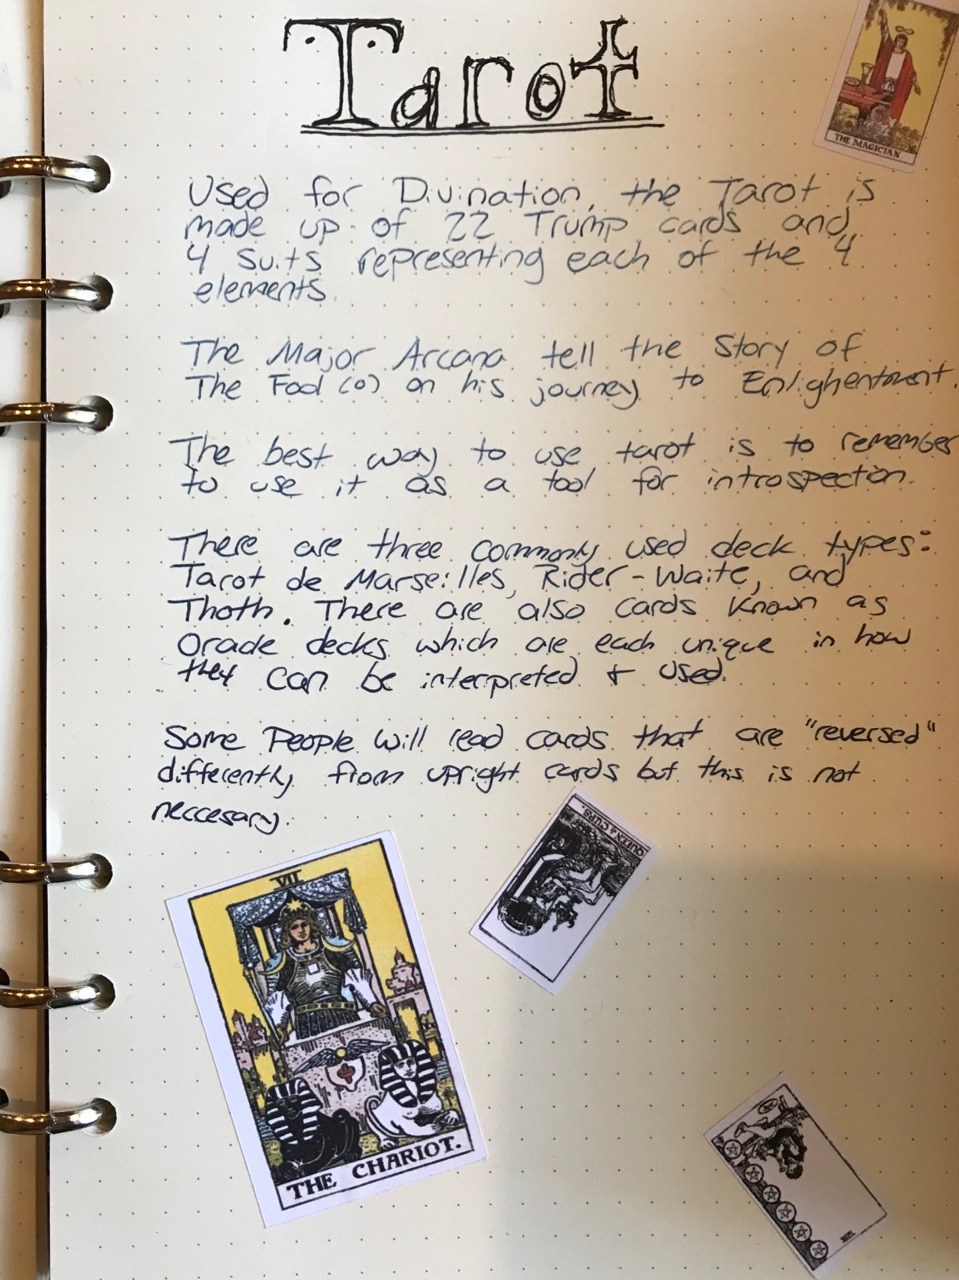 Tarot
THE MAGICIAN
Used for Divination, the Tarot is
made up of 22 Trump cards and
4 Suits representing each of the 4
elements
The Major Arcana tell the Story of
The Fool (0) on his journey to Enlightenment.
The best way to use tarot is to remember
to use it as a tool for introspection.
There are three commonly used deck types:
Tarot de Marseilles, Rider-Waite, and
Thoth. There are also cards known as
Oracle decks which are each unique in how
they can be interpreted + used.
Some People will read cards that are "reversed"
differently from upright cards but this is not
neccesary.
QUEEN of CUPS.
VII
THE CHARIOT.
VIII